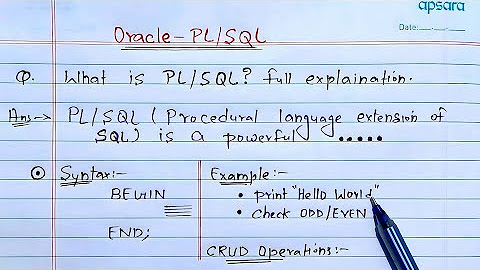 apsara
Date:
Oracle-PL/SQL
Q. What is PL/SQL? full explaination.
Ans → PL/SQL (Procedural language extension of
SQL) is a powerful .....
Syntax:-
BEGIN
END;
Example:-
• Print "Hello World"
• Check ODD/EVEN
CRUD Operations:-